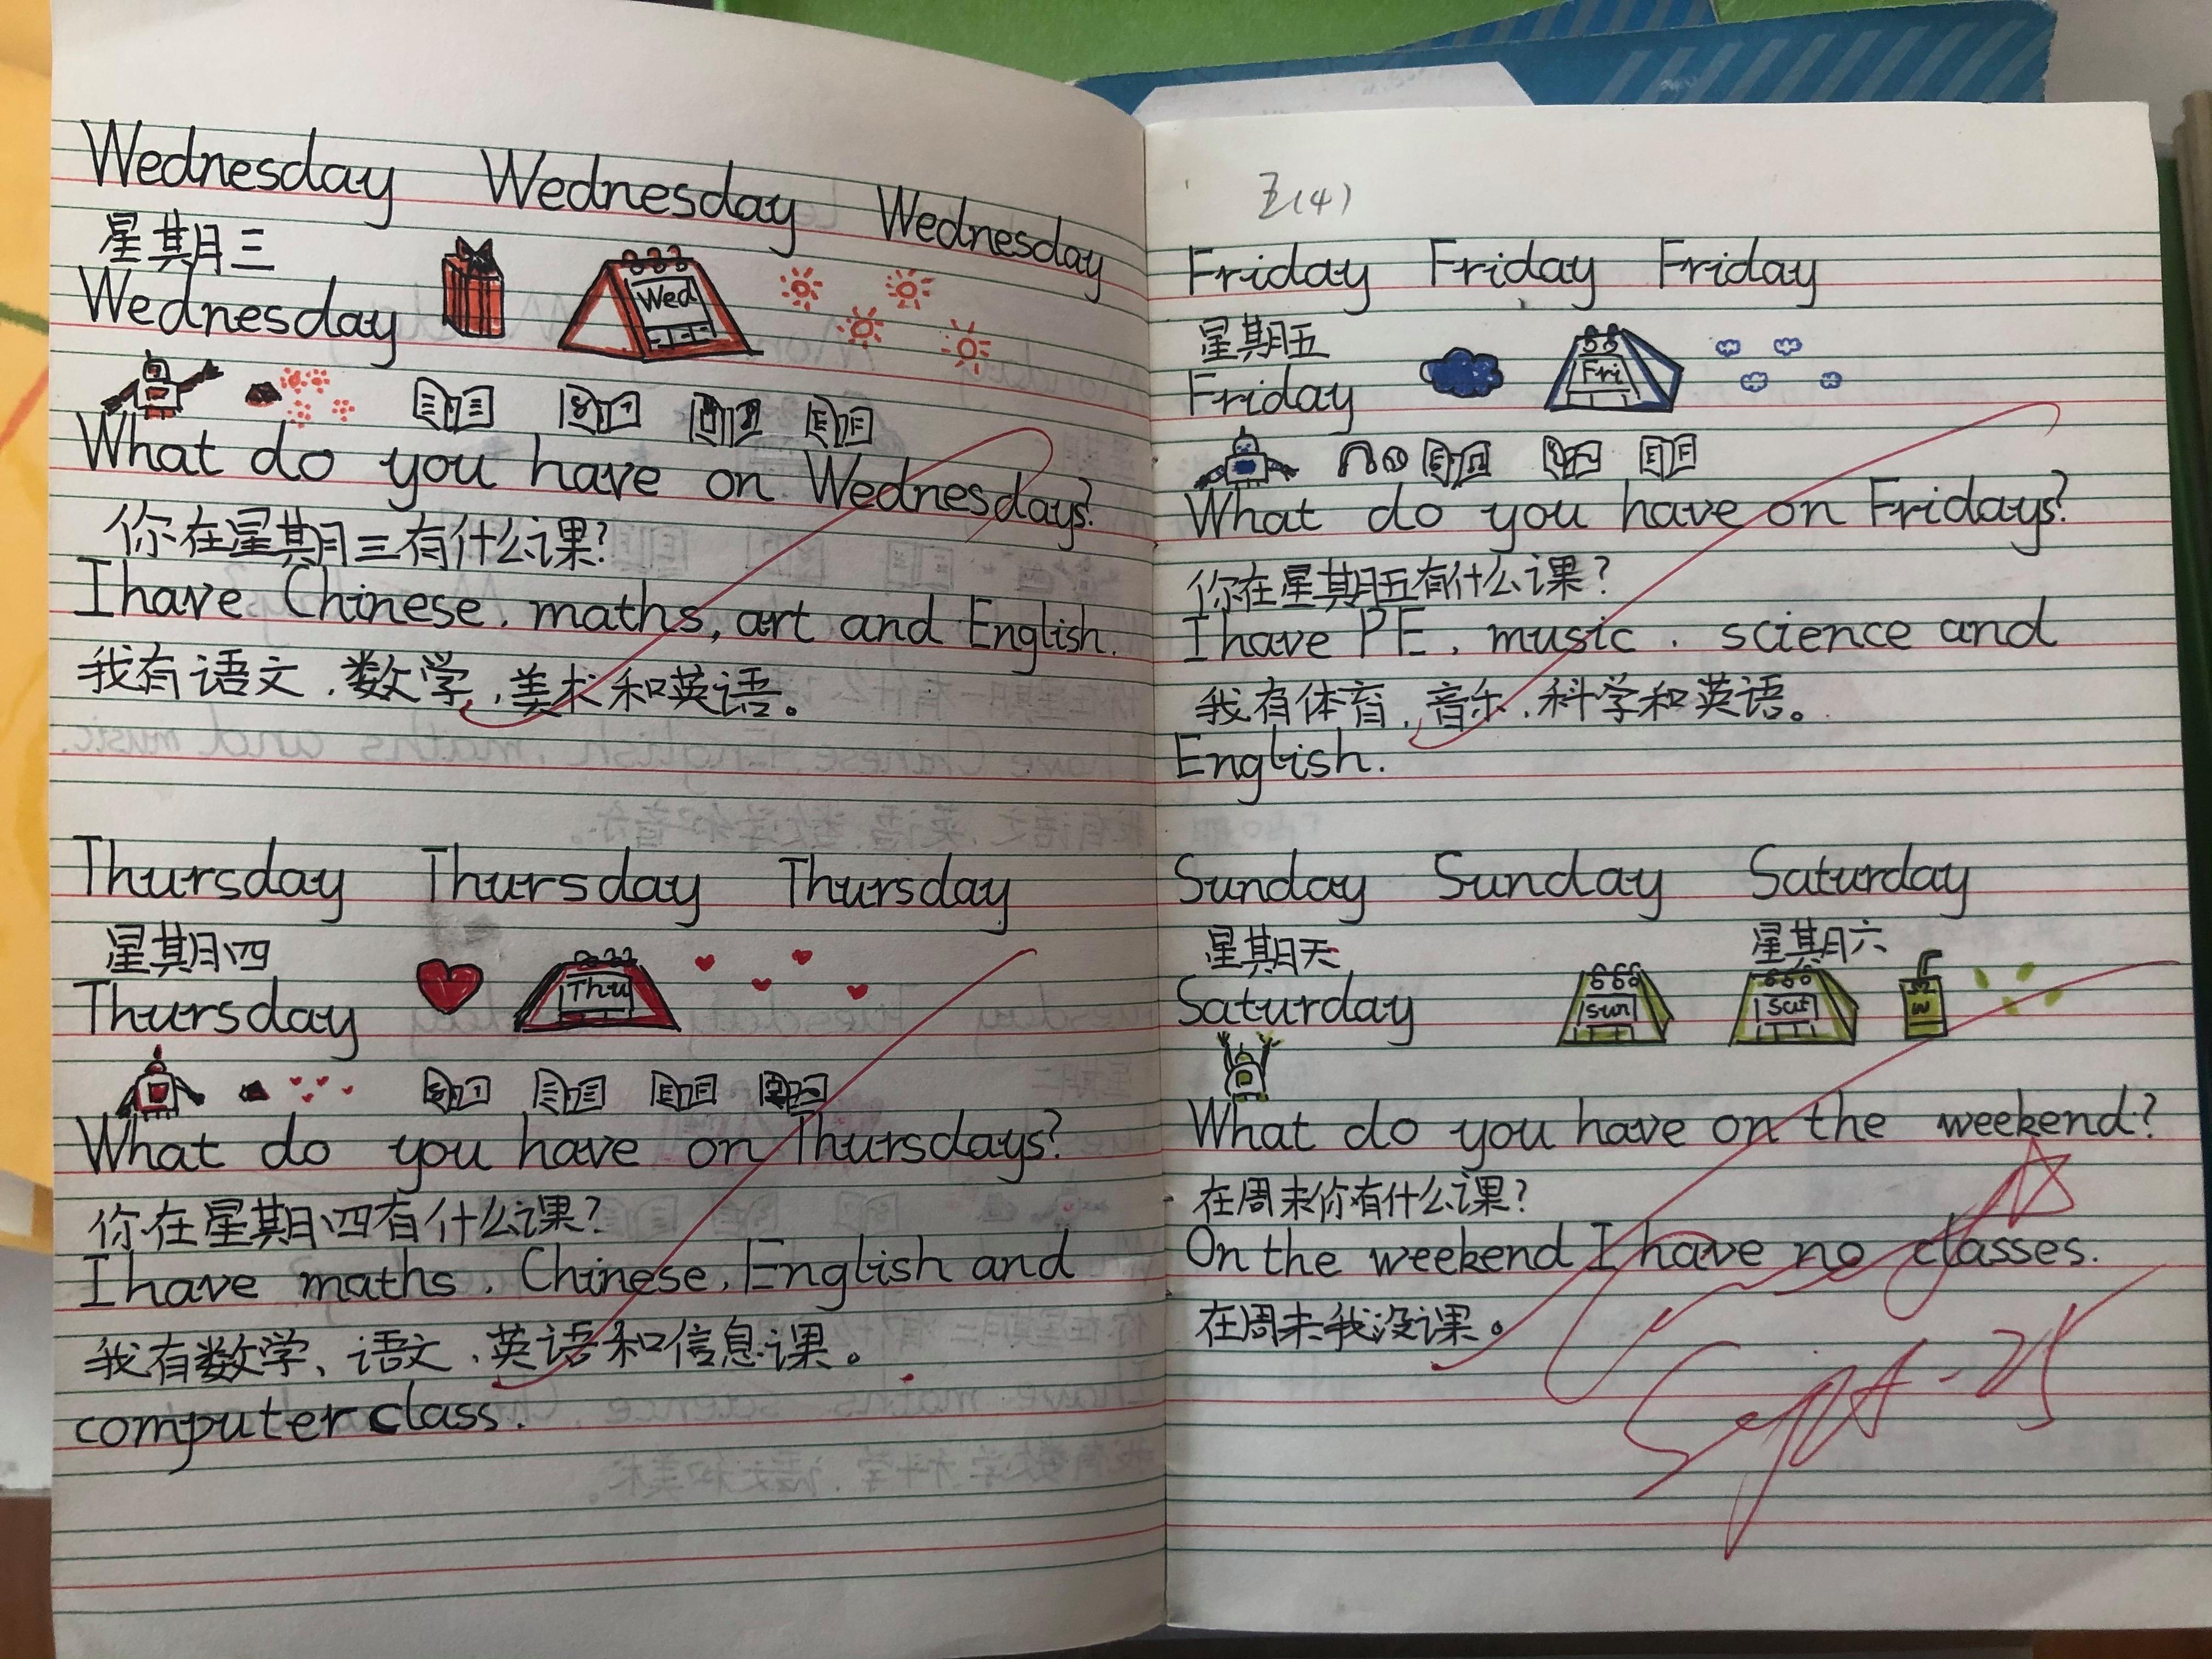 Wednesday Wednesday Wednesday
星期三
Wednesday
Wed
What do you have on Wednesdays?
你在星期三有什么课?
I have Chinese. maths, art and English.
我有语文、数学、美术和英语。
Thursday Thursday Thursday
星期四
Thursday
Thu
What do you have on Thursdays?
你在星期四有什么课?
I have maths. Chinese. English and
我有数学、语文、英语和信息课。
computer class.
Friday Friday Friday
星期五
Friday
Fri
What do you have on Fridays?
你在星期五有什么课?
I have PE. music. science and
我有体育、音乐、科学和英语。
English.
Sunday Sunday Saturday
星期天 星期六
Saturday
Sun Sat
What do you have on the weekend?
在周末你有什么课?
On the weekend I have no classes.
在周末我没课。
Sept-25